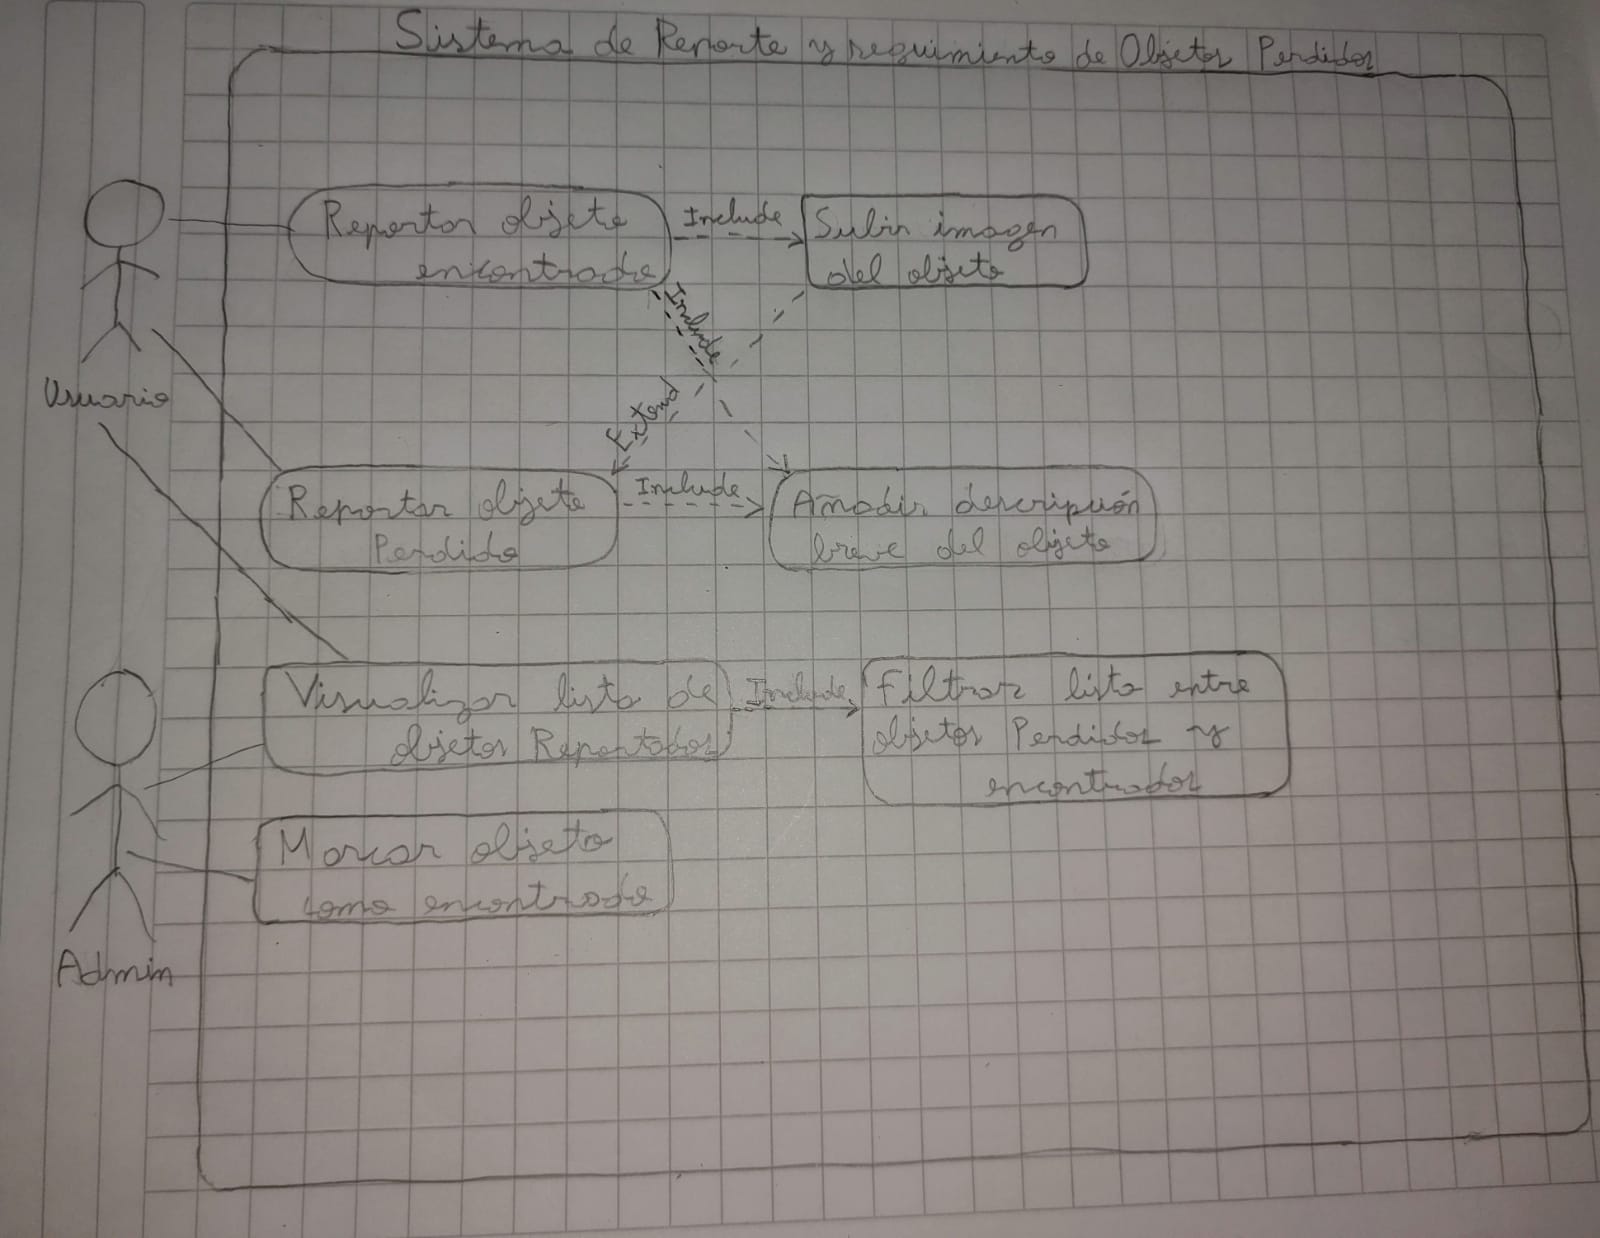 Sistema de Reporte y seguimiento de Objetos Perdidos
Reportar objeto
encontrado
Include
Subir imagen
del objeto
Include
Extend
Usuario
Reportar objeto
Perdido
Include
Añadir descripción
breve del objeto
Visualizar lista de
objetos Reportados
Include
Filtrar lista entre
objetos Perdidos y
encontrados
Marcar objeto
como encontrado
Admin